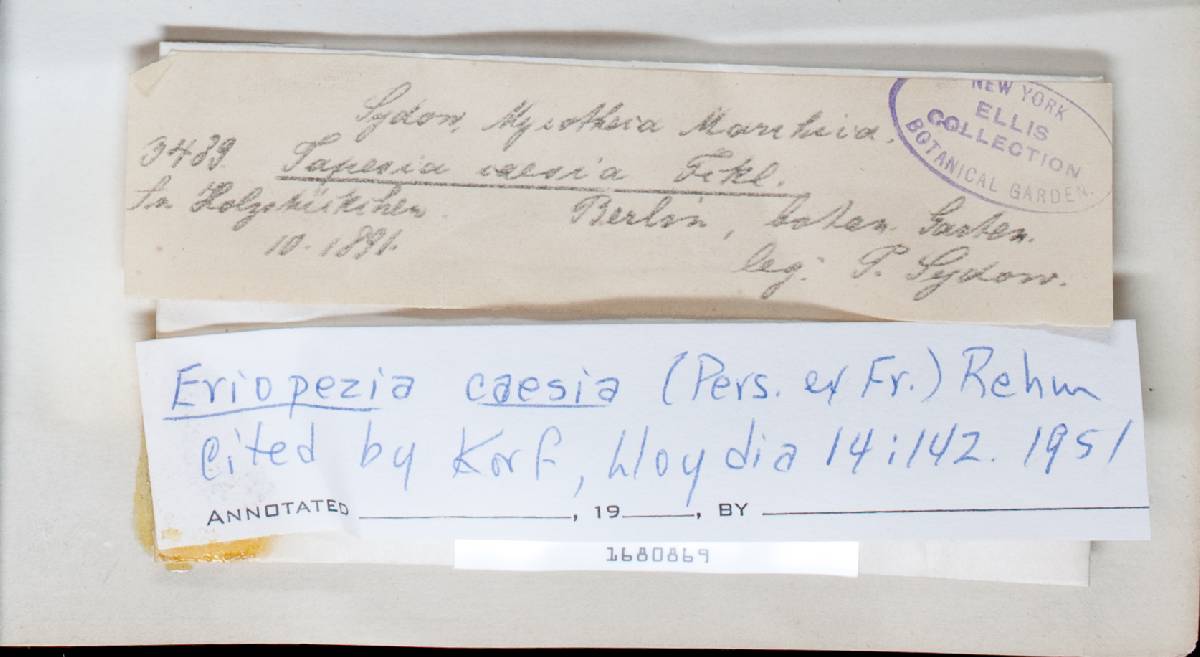 Sydow, Mycotheca Marchica.
3489. Tapesia caesia Fckl.
An Holzstückchen. Berlin, botan. Garten.
10. 1891. leg: P. Sydow.
NEW YORK
ELLIS
COLLECTION
BOTANICAL GARDEN.
Eriopezia caesia (Pers. ex Fr.) Rehm
Cited by Korf, Lloydia 14:142. 1951
ANNOTATED ____________, 19____, BY ____________
1680869